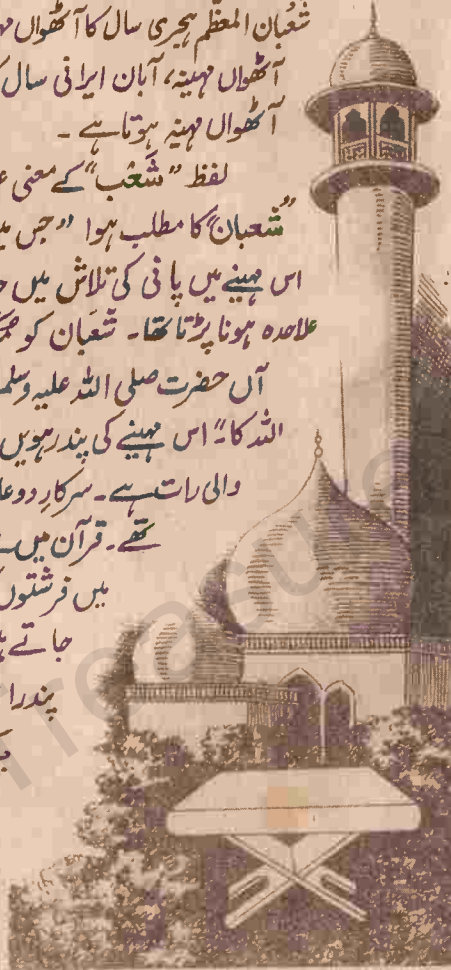 شعبان المعظّم ہجری سال کا آٹھواں
آٹھواں مہینہ، آبان ایرانی سال
آٹھواں مہینہ ہوتا ہے ۔
لفظ "شَعْب" کے معنی
"شعبان" کا مطلب ہوا "جس
اس مہینے میں پانی کی تلاش میں
علاحدہ ہونا پڑتا تھا۔ شَعْبان کو
آں حضرت صلی اللہ علیہ وسلم
اللہ کا"۔ اس مہینے کی پندرہویں
والی رات ہے۔ سرکارِ دو
تھے۔ قرآن میں
میں فرشتوں
جاتے
پندرا
reasure